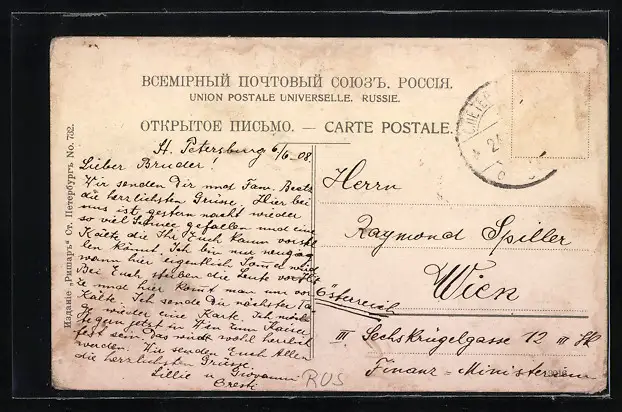 ВСЕМІРНЫЙ ПОЧТОВЫЙ СОЮЗЪ. РОССІЯ.
UNION POSTALE UNIVERSELLE. RUSSIE.
ОТКРЫТОЕ ПИСЬМО. — CARTE POSTALE.
St. Petersburg 6/6. 08.
Lieber Bruder!
Wir senden Dir und Fam. Beste
die herrlichsten Grüsse. Hier bei
uns ist gestern nacht wieder
so viel Schnee gefallen und eine
Kälte, die Ihr Euch kaum vorstel
len könnt. Ich bin nur neugierig
wann hier eigentlich Somer wird
Bei Euch sterben die Leute vor Hit
ze und hier komt man um vor
Kälte. Ich sende Dir nächster Ta
ge wieder eine Karte. Ich möchte
gern jetzt in Wien zum Kaiser
fest sein, das wird wohl herrlich
werden. Wir senden Euch Allen
die herrlichsten Grüsse.
Lillie u Giovanni
Oresti
Herrn
Raymond Spiller
Wien
Österreich
III. Sechskrügelgasse 12 III St
Finanz-Ministerium
RUS
Изданіе „Ришаръ" Ст. Петербургъ No. 732.